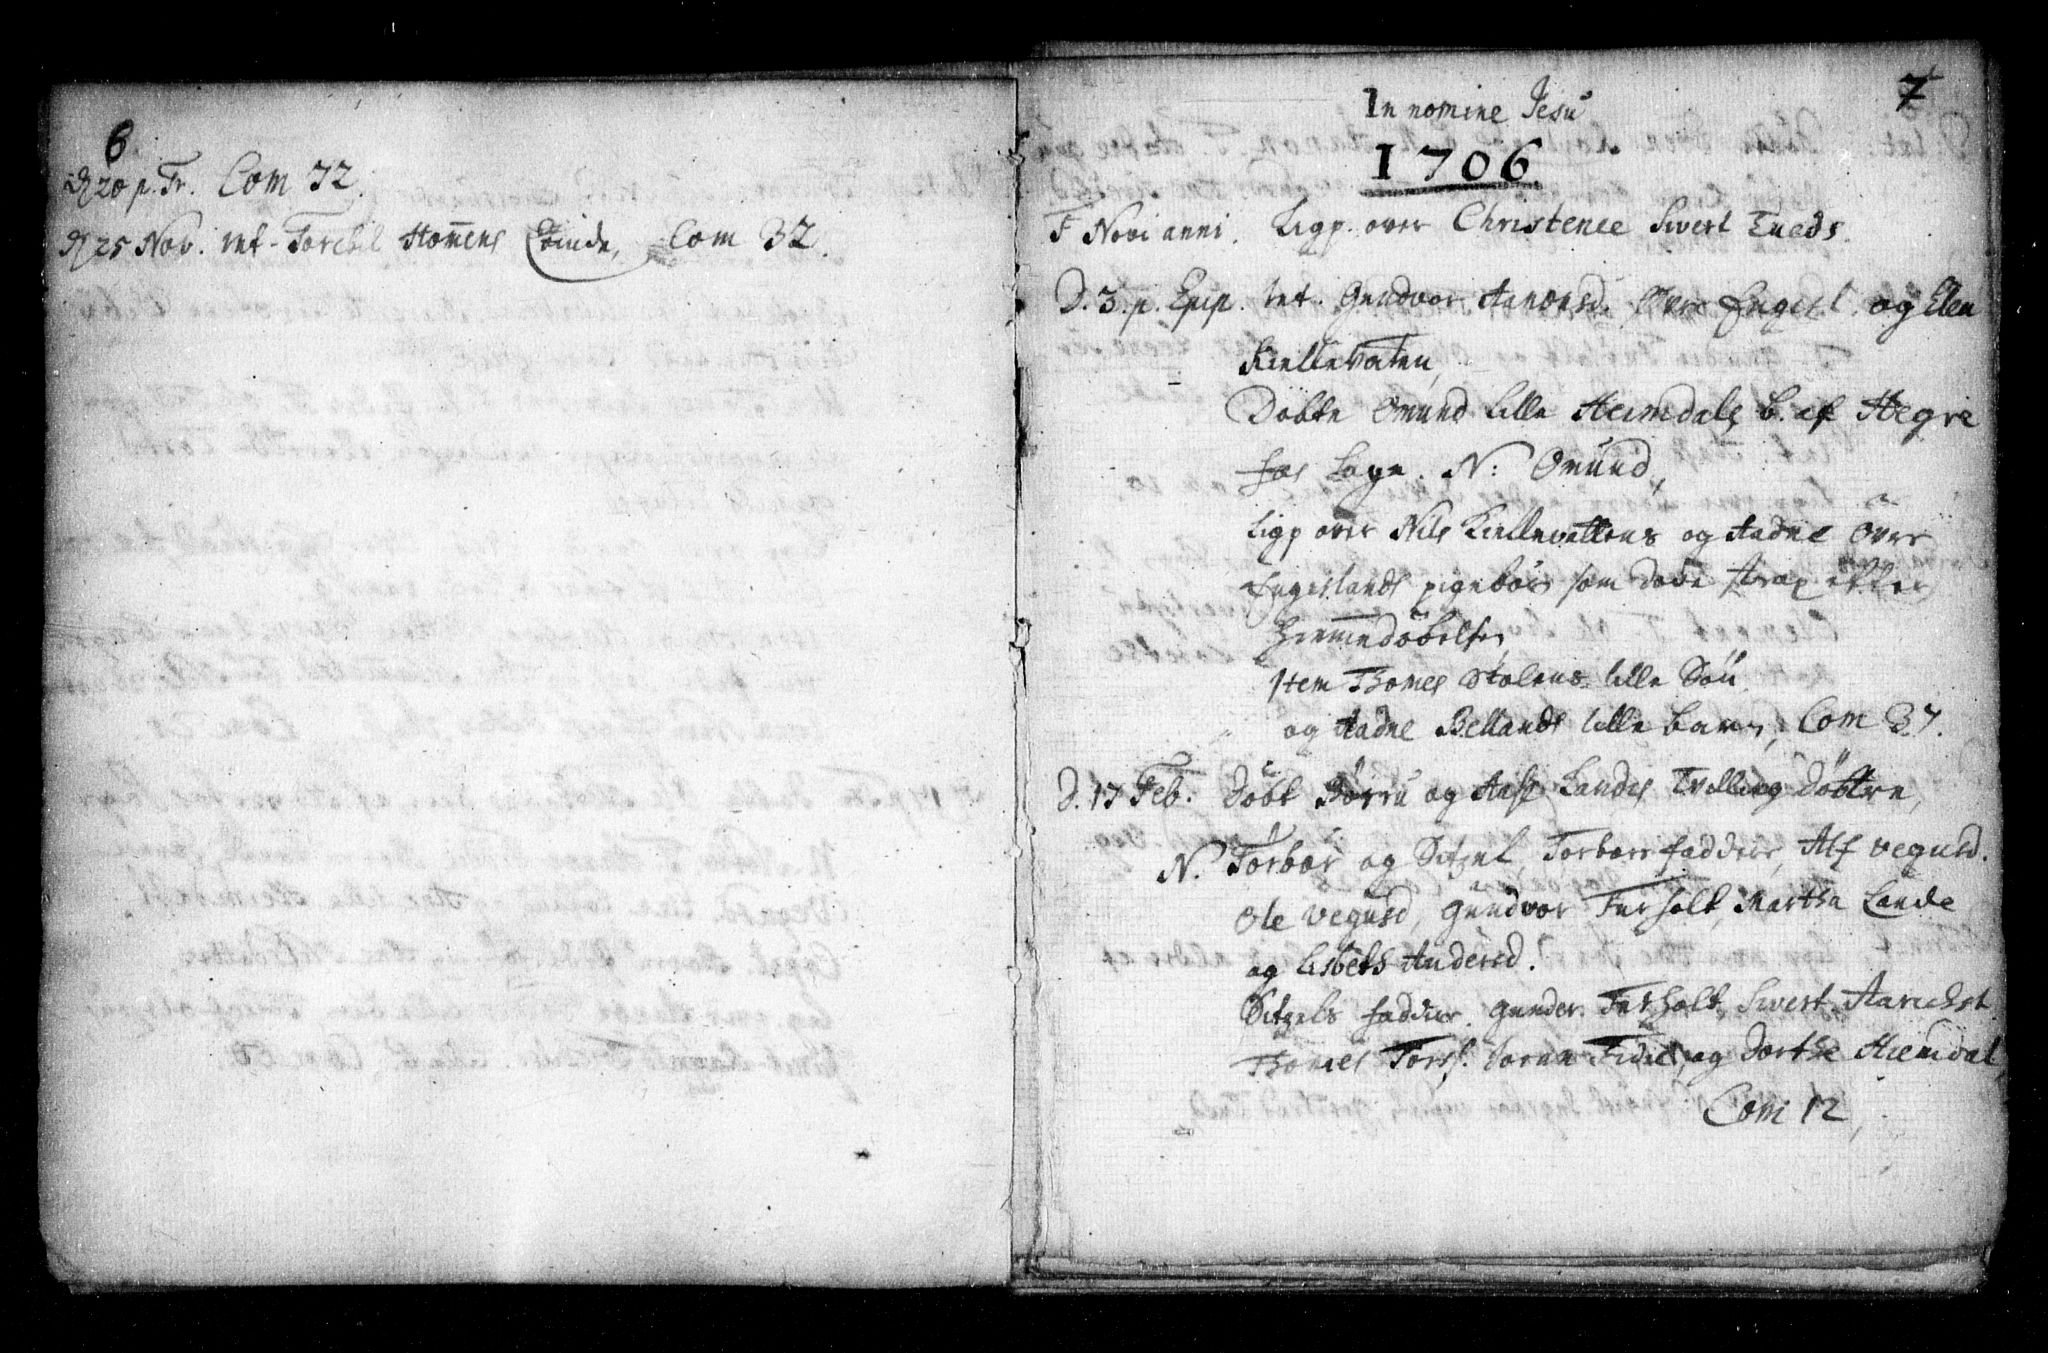 6
D 20 p. Tr. Com 32.
D 25 Nov. int. Torchel Homens Qvinde, Com 32.
7
In nomine Jesu
1706
F Novi anni. Ligp. over Christence Sivert Tveds.
D. 3. p. Epip. Int. Gundvor Aanensd. Over Engesl. og Elen
Kiellevaten,
Döbte Omund lille Heimdals b. af Hegre
fos Sogn. N: Omund,
Ligp over Nils Kiellevattens og Aadne Over
Engeslands pigebörn som döde strax efter
Hiemmedöbelsen
Item Thomes Stolens lille Sön
og Aadne Bellands lille barn, Com 37.
D. 17 Feb. Döbt Börru og Aase Landes Tvilling Döttre,
N. Torbor og Sitzel Torbors faddere, Alf Vegusd.
Ole Vegusd, Gundvor Furholt, Martha Lande
og Lisbeth Andersd.
Sitzels faddere. Gunder Furholt, Sivert Aarichst.
Thomes Torss. Joran Fidie, og Dorthe Hiemdal,
Com 12,